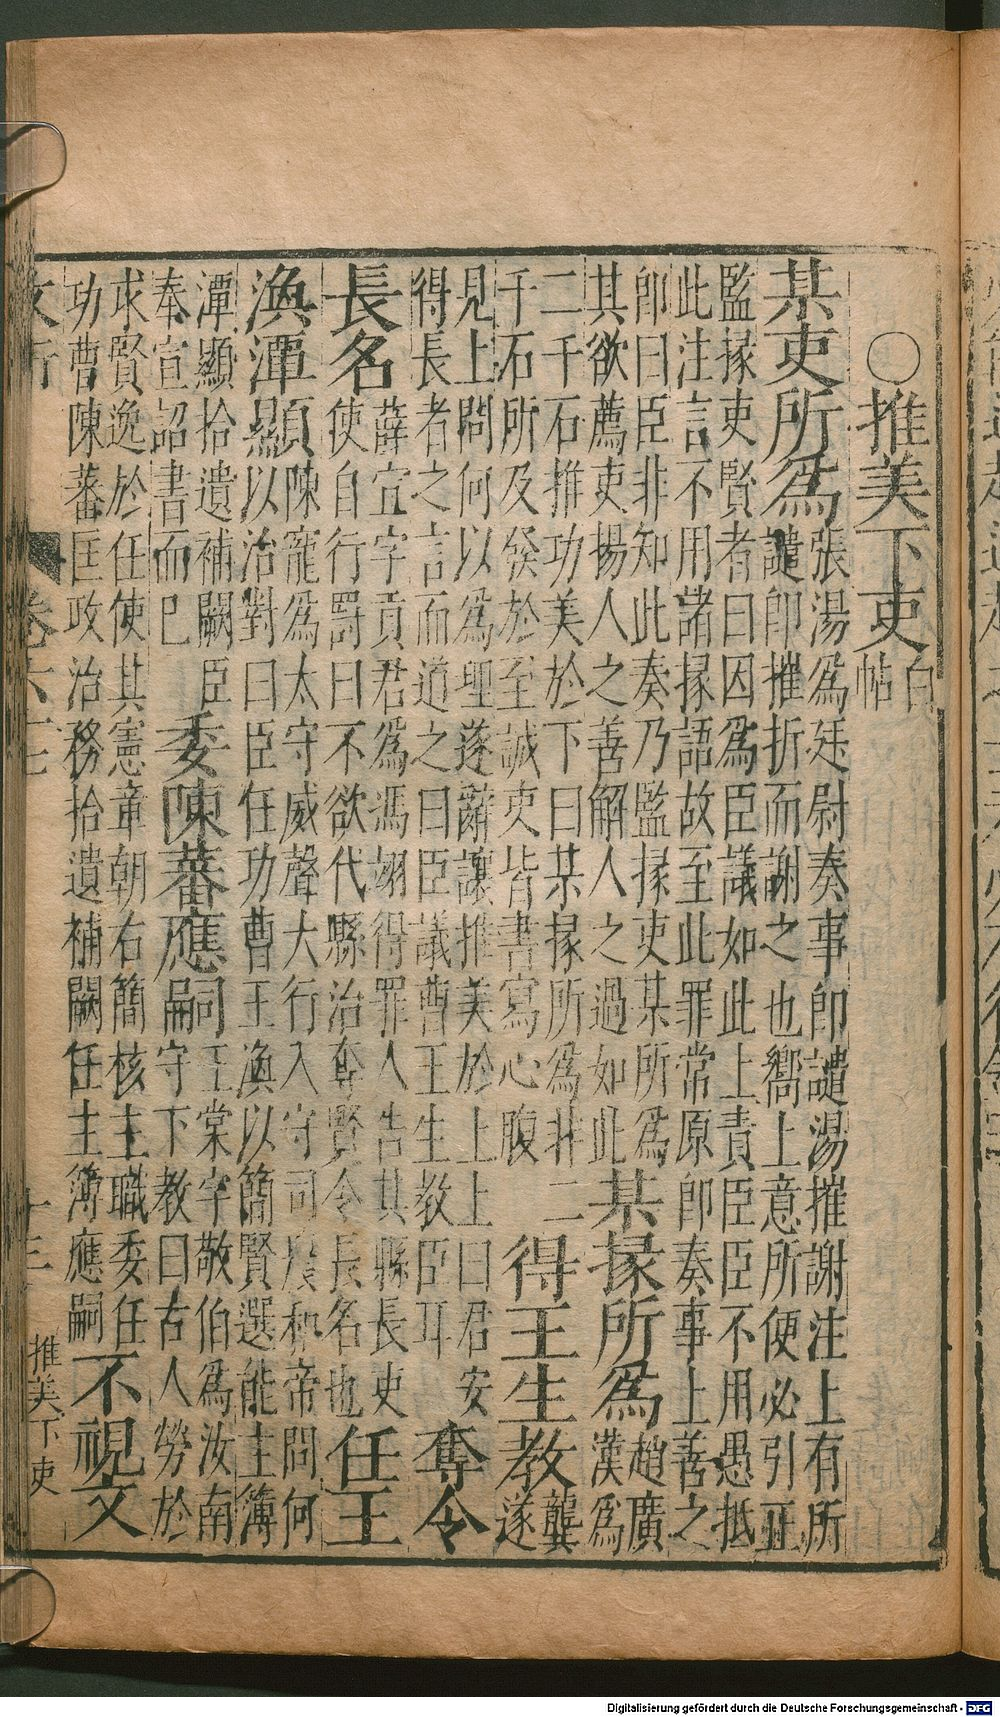 ○推美下吏 白帖
某吏所為 張湯為廷尉奏事即譴湯摧謝注上有所
譴即摧折而謝之也嚮上意所便必引正
監掾吏賢者曰因為臣議如此上責臣臣不用愚抵
此注言不用諸掾語故至此罪常原即奏事上善之
即曰臣非知此奏乃監掾吏某所為
其欲薦吏揚人之善解人之過如此 某掾所為 趙廣
漢為
二千石推功美於下曰某掾所為非二
千石所及發於至誠吏皆書寫心腹 得王生教 龔
遂
見上問何以為理遂辭讓推美於上上曰君安
得長者之言而道之曰臣議曹王生教臣耳 奪令
長名 薛宣字貢君為馮翊得罪人告其縣長吏
使自行罰曰不欲代縣治奪賢令長名也 任王
渙潭顯 陳寵為太守威聲大行入守司農和帝問何
以治對曰臣任功曹王渙以簡賢選能主簿
潭顯拾遺補闕臣
奉宣詔書而已 委陳蕃應嗣 王棠字敬伯為汝南
守下教曰古人勞於
求賢逸於任使其憲章朝右簡核主職委任
功曹陳蕃匡政治務拾遺補闕任主簿應嗣 不視文
推美下吏
Digitalisierung gefördert durch die Deutsche Forschungsgemeinschaft - DFG